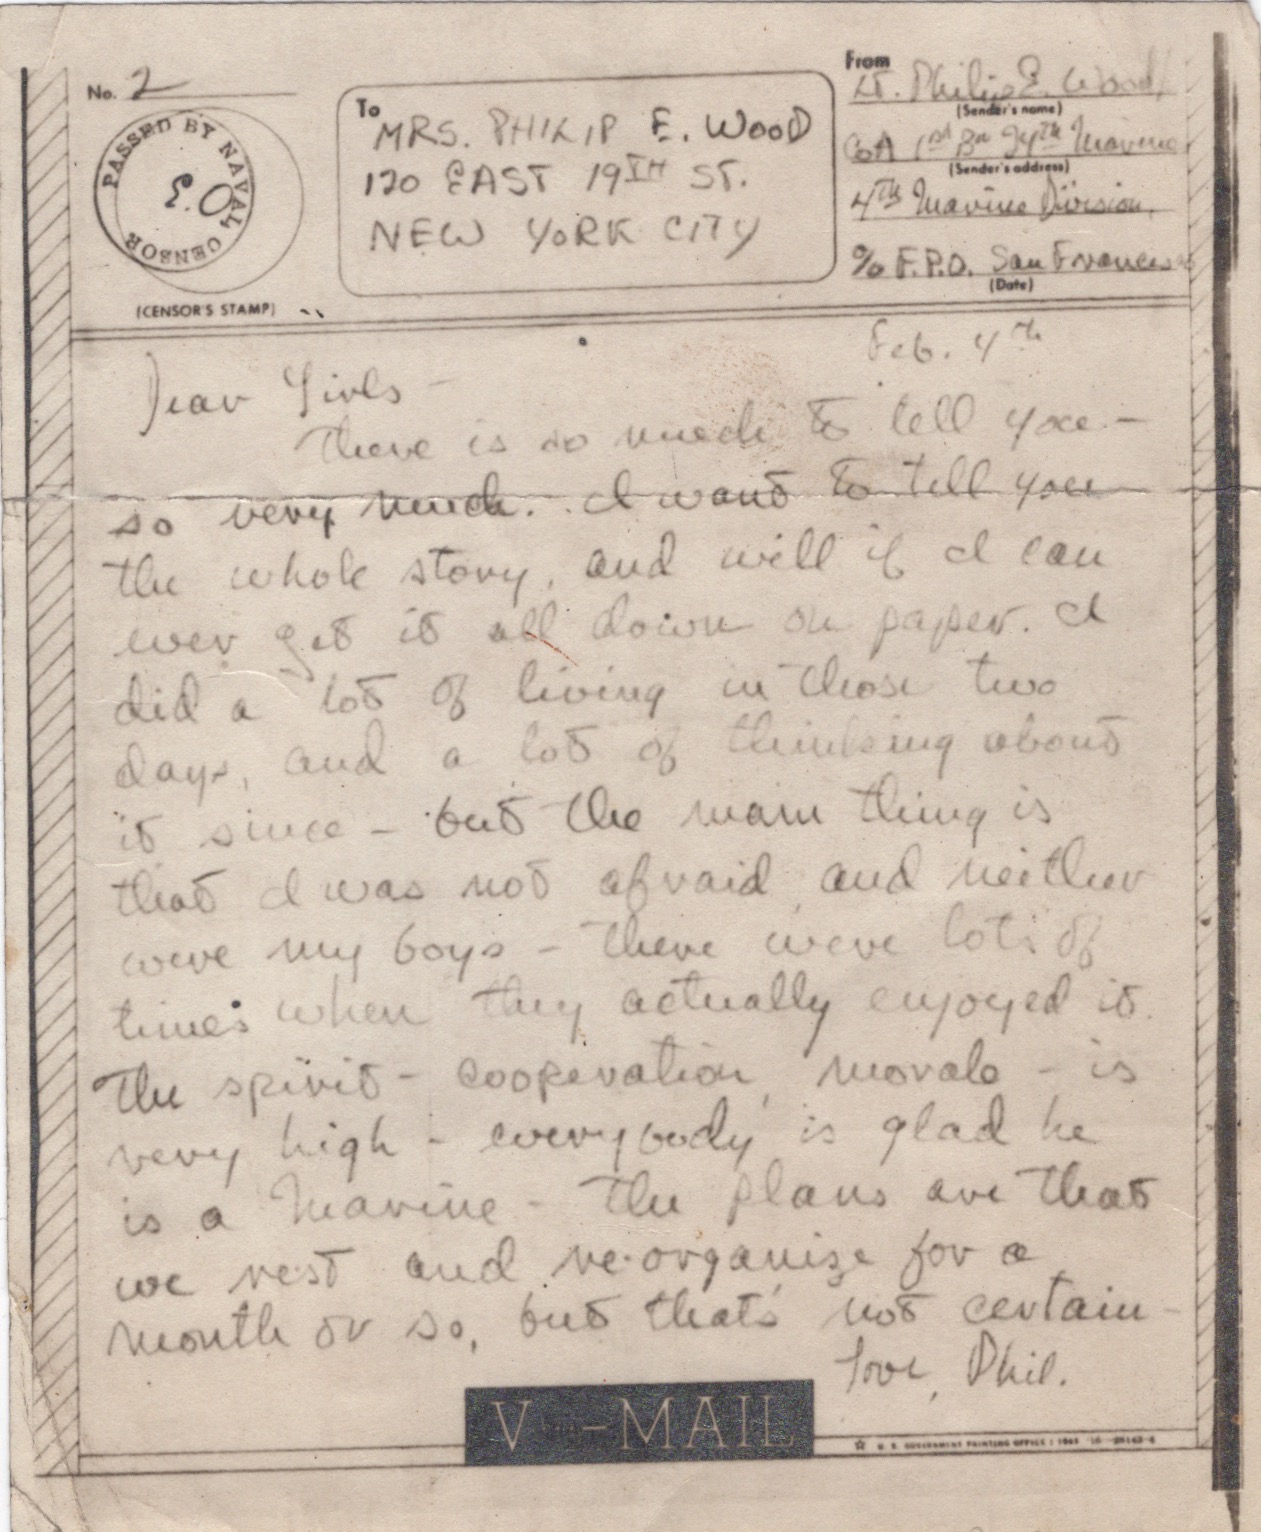 No. 2
PASSED BY NAVAL CENSOR
E.O
(CENSOR'S STAMP)
To
MRS. PHILIP E. WOOD
120 EAST 19TH ST.
NEW YORK CITY
From
Lt. Philip E. Wood
(Sender's name)
Co A 1st Bn 24th Marines
(Sender's address)
4TH Marine Division,
℅ F.P.O. San Francisco
(Date)
Feb. 4th
Dear Girls –
There is so much to tell you –
so very much. I want to tell you
the whole story, and will if I can
ever get it all down on paper. I
did a lot of living in those two
days, and a lot of thinking about
it since – but the main thing is
that I was not afraid, and neither
were my boys – there were lots of
times when they actually enjoyed it.
The spirit – cooperation, morale – is
very high – everybody is glad he
is a Marine – The plans are that
we rest and re-organize for a
month or so, but that's not certain –
Love, Phil.
V---MAIL
☆ U. S. GOVERNMENT PRINTING OFFICE : 1943